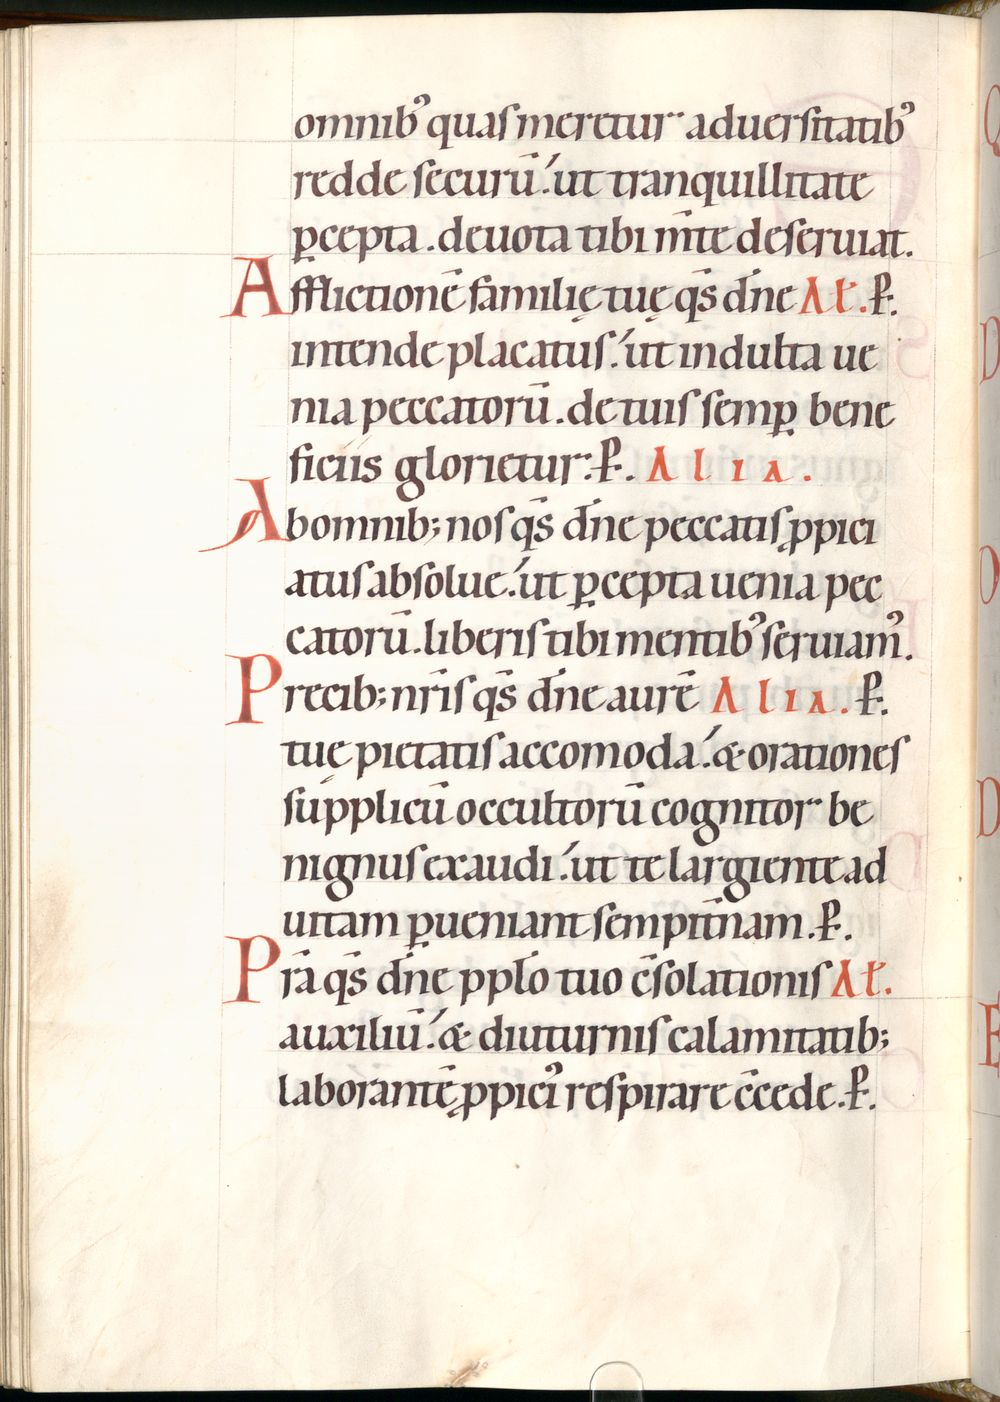 omnib᾽ quas meretur aduersitatib᾽
redde securū. ut tranquillitate
ꝑcepta. deuota tibi m̄te deseruiat.
Afflictionē familię tuę qs̄ dn̄e Al̄. P̱.
intende placatus. ut indulta ue
nia peccatorū. de tuis semꝑ bene
ficiis glorietur. P̱. Alia.
Ab omnib; nos qs̄ dn̄e peccatis ꝓpici
atus absolue. ut ꝑcepta uenia pec
catorū. liberis tibi mentib᾽ seruiam᾽.
Precib; nr̄is qs̄ dn̄e aurē Alia. P̱.
tuę pietatis accomoda. & orationes
supplicū occultorū cognitor be
nignus exaudi. ut te largiente ad
uitam ꝑueniant sempit̄nam. P̱.
Pr̄a qs̄ dn̄e pplo̅ tuo c̄solationis Al̄.
auxiliū. & diuturnis calamitatib;
laborantē ꝓpici᾽ respirare c̄cede. P̱.